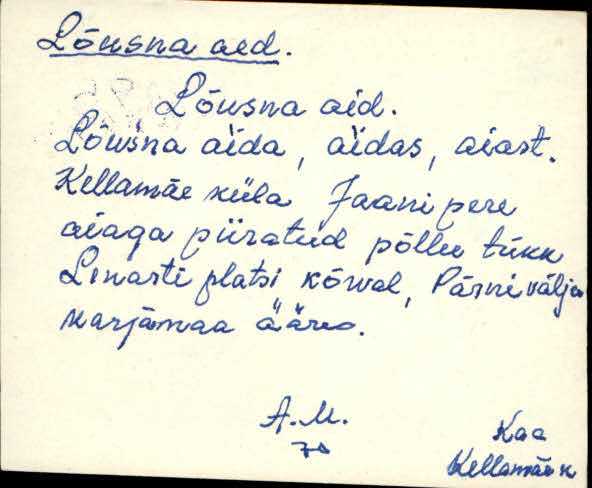 Lõusna aed.
Lõusna aid.
Lõusna aida, aidas, aiast.
Kellamäe küla Jaani pere
aiaga piiratud põllu tükk
Linasti platsi kõrval, Pärni välja
karjamaa ääres.
A.M.
70
Kaa
Kellamäe k